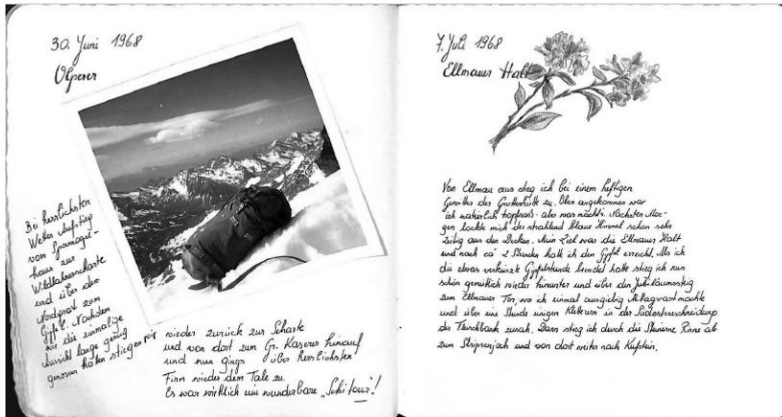 30. Juni 1968
Olperer
Bei herrlichsten
Wetter Aufstieg
vom Spannagel-
haus zur
Wildlahnerscharte
und über den
Nordgrat zum
Gipfel. Nachdem
wir die einmalige
Aussicht lange genug
genossen hatten stiegen wir
wieder zurück zur Scharte
und von dort zum Gr. Kaserer hinauf
und nun gings über herrlichsten
Firn wieder dem Tale zu.
Es war wirklich eine wunderbare „Schitour“!
7. Juli 1968
Ellmauer Halt
Von Ellmau aus stieg ich bei einem heftigen
Gewitter der Gruttenhütte zu. Oben angekommen war
ich natürlich - aber was machts. Nächsten Mor-
gen lockte mich der strahlend blaue Himmel schon sehr
zeitig aus den Decken. Mein Ziel war die Ellmauer Halt
und nach ca 2 Stunden hatte ich den Gipfel erreicht. Als ich
die etwas verkürzte Gipfelstunde beendet hatte stieg ich nun
schön gemütlich wieder hinunter und über den Jubiläumssteig
zum Ellmauer Tor, wo ich einmal ausgiebig Mittagsrast machte
und über eine Stunde einigen Kletterern in der
der Fleischbank zusah. Dann stieg ich durch die Steinerne Rinne ab
zum Stripsenjoch und von dort weiter nach Kufstein.